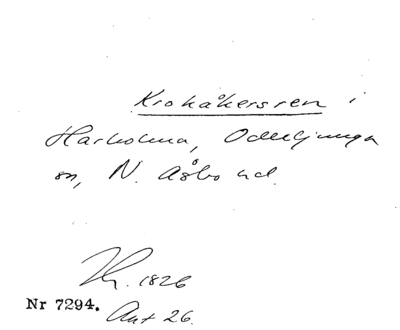 Krokåkersren i
Harholma, Oderljunga
sn, N. Åsbo hd.
Th. 1826
Nr 7294. Ant 26.